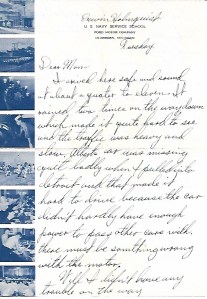 Edwin Holmquist
U. S. NAVY SERVICE SCHOOL
FORD MOTOR COMPANY
DEARBORN, MICHIGAN
Tuesday
Dear Mom:
I arived here safe and sound
at about a quarter to eleven. It
rained two times on the way down
which made it quite hard to see
and the traffic was heavy and
slow. car was missing
quite badly when I pulled into
detroit and that made it
hard to drive because the car
didn't hardly have enough
power to pass other cars with.
there must be something wrong
with the motor.
Well I didn't have any
trouble on the way